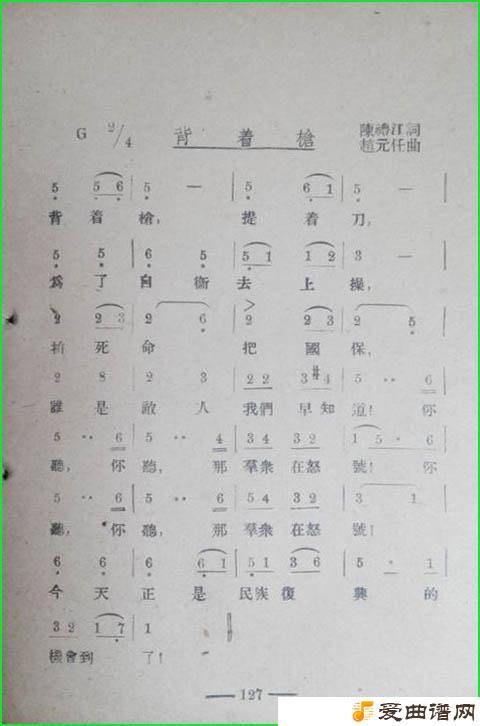 G 2/4 背着槍 陳禮江詞
趙元任曲
5 5 6 | 5 — | 5 6 1 | 5 —
背着槍, 提着刀,
5 5 | 6 5 | 5 1 1 2 | 3 —
為了自衛去上操,
2 2 3 | 2 6 | 2 2 3 | 2 5
拚死命 把國保,
2 3 | 2 3 | 2 2 3 #4 | 5 ·· 6
誰是敵人我們早知道! 你
5 ·· 6 | 5 ·· 4 | 3 4 3 2 | 1 5 · 6
聽, 你聽, 那羣衆在怒號! 你
5 ·· 6 | 5 ·· 6 | 5 4 3 2 | 3 1
聽, 你聽, 那羣衆在怒號!
6 6 | 6 6 1 | 5 1 3 6 | 5 · 1
今天正是民族復興的
3 2 1 7 | 1
機會到了!
— 127 —
爱曲谱网